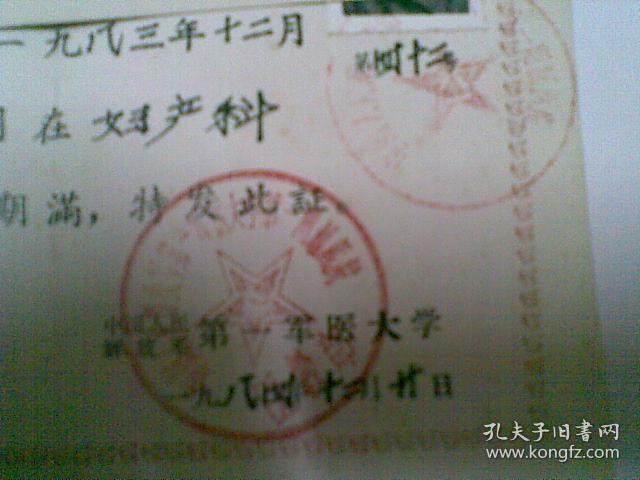 一九八三年十二月
第四十二号
在 妇产科
期满，特发此証。
中国人民
解放军 第一军医大学
一九八四年十二月廿日
孔夫子旧书网
www.kongfz.com